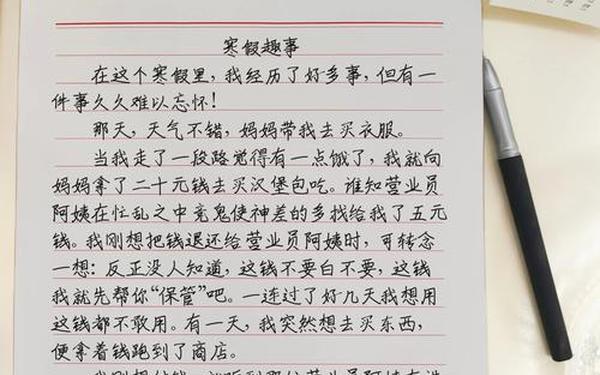 寒假趣事
在这个寒假里，我经历了好多事，但有一
件事久久难以忘怀！
那天，天气不错，妈妈带我去买衣服。
当我走了一段路觉得有一点饿了，我就向
妈妈拿了二十元钱去买汉堡包吃。谁知营业员
阿姨在忙乱之中竟鬼使神差的多找给我了五元
钱。我刚想把钱退还给营业员阿姨时，可转念
一想：反正没人知道，这钱不要白不要，这钱
我就先帮你“保管”吧。一连过了好几天我想用
这钱都不敢用。有一天，我突然想去买东西，
便拿着钱跑到了商店。